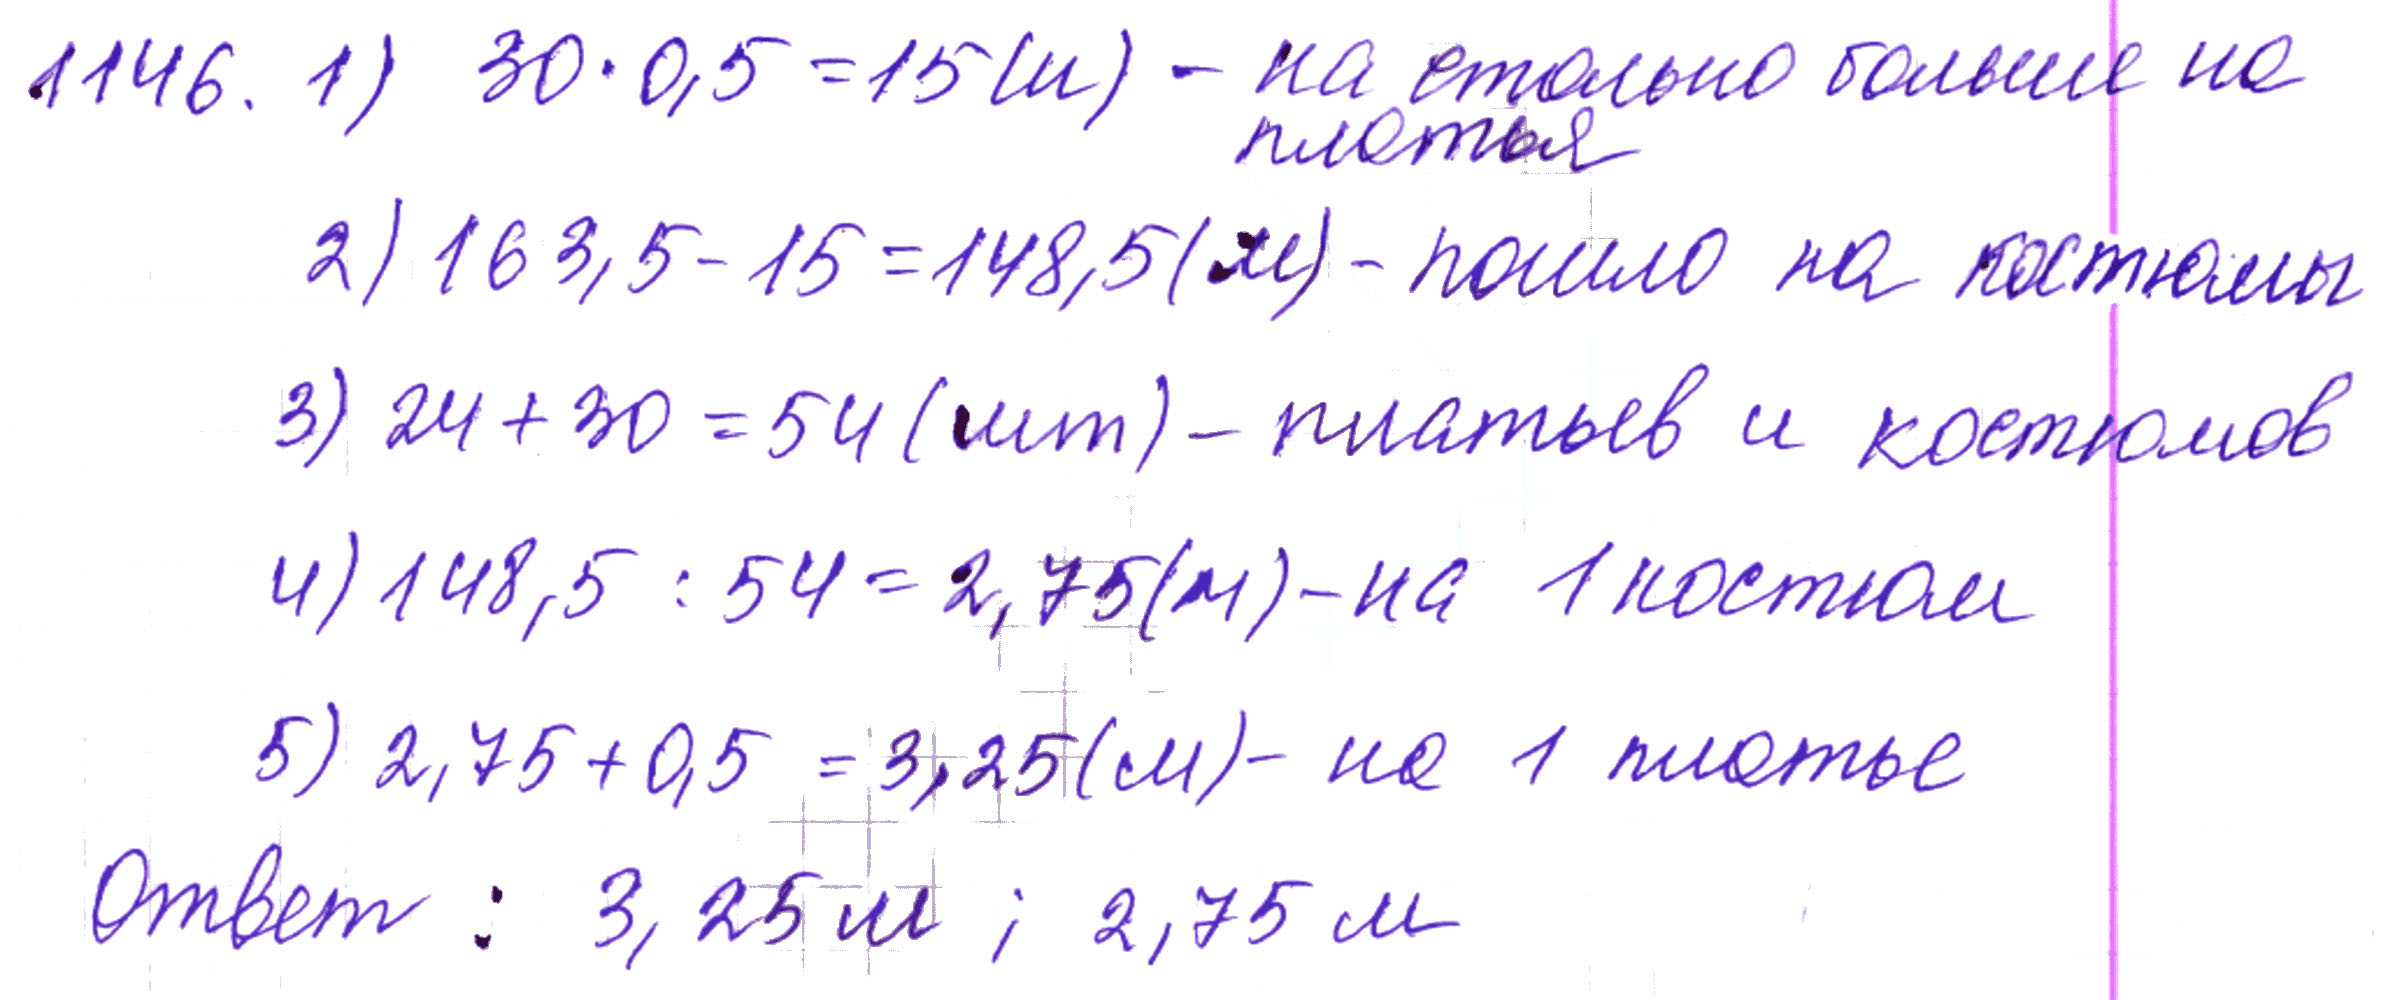 1146. 1) 30 · 0,5 = 15 (м) - на столько больше на
платья
2) 163,5 - 15 = 148,5 (м) - пошло на костюмы
3) 24 + 30 = 54 (шт) - платьев и костюмов
4) 148,5 : 54 = 2,75 (м) - на 1 костюм
5) 2,75 + 0,5 = 3,25 (м) - на 1 платье
Ответ : 3,25 м ; 2,75 м